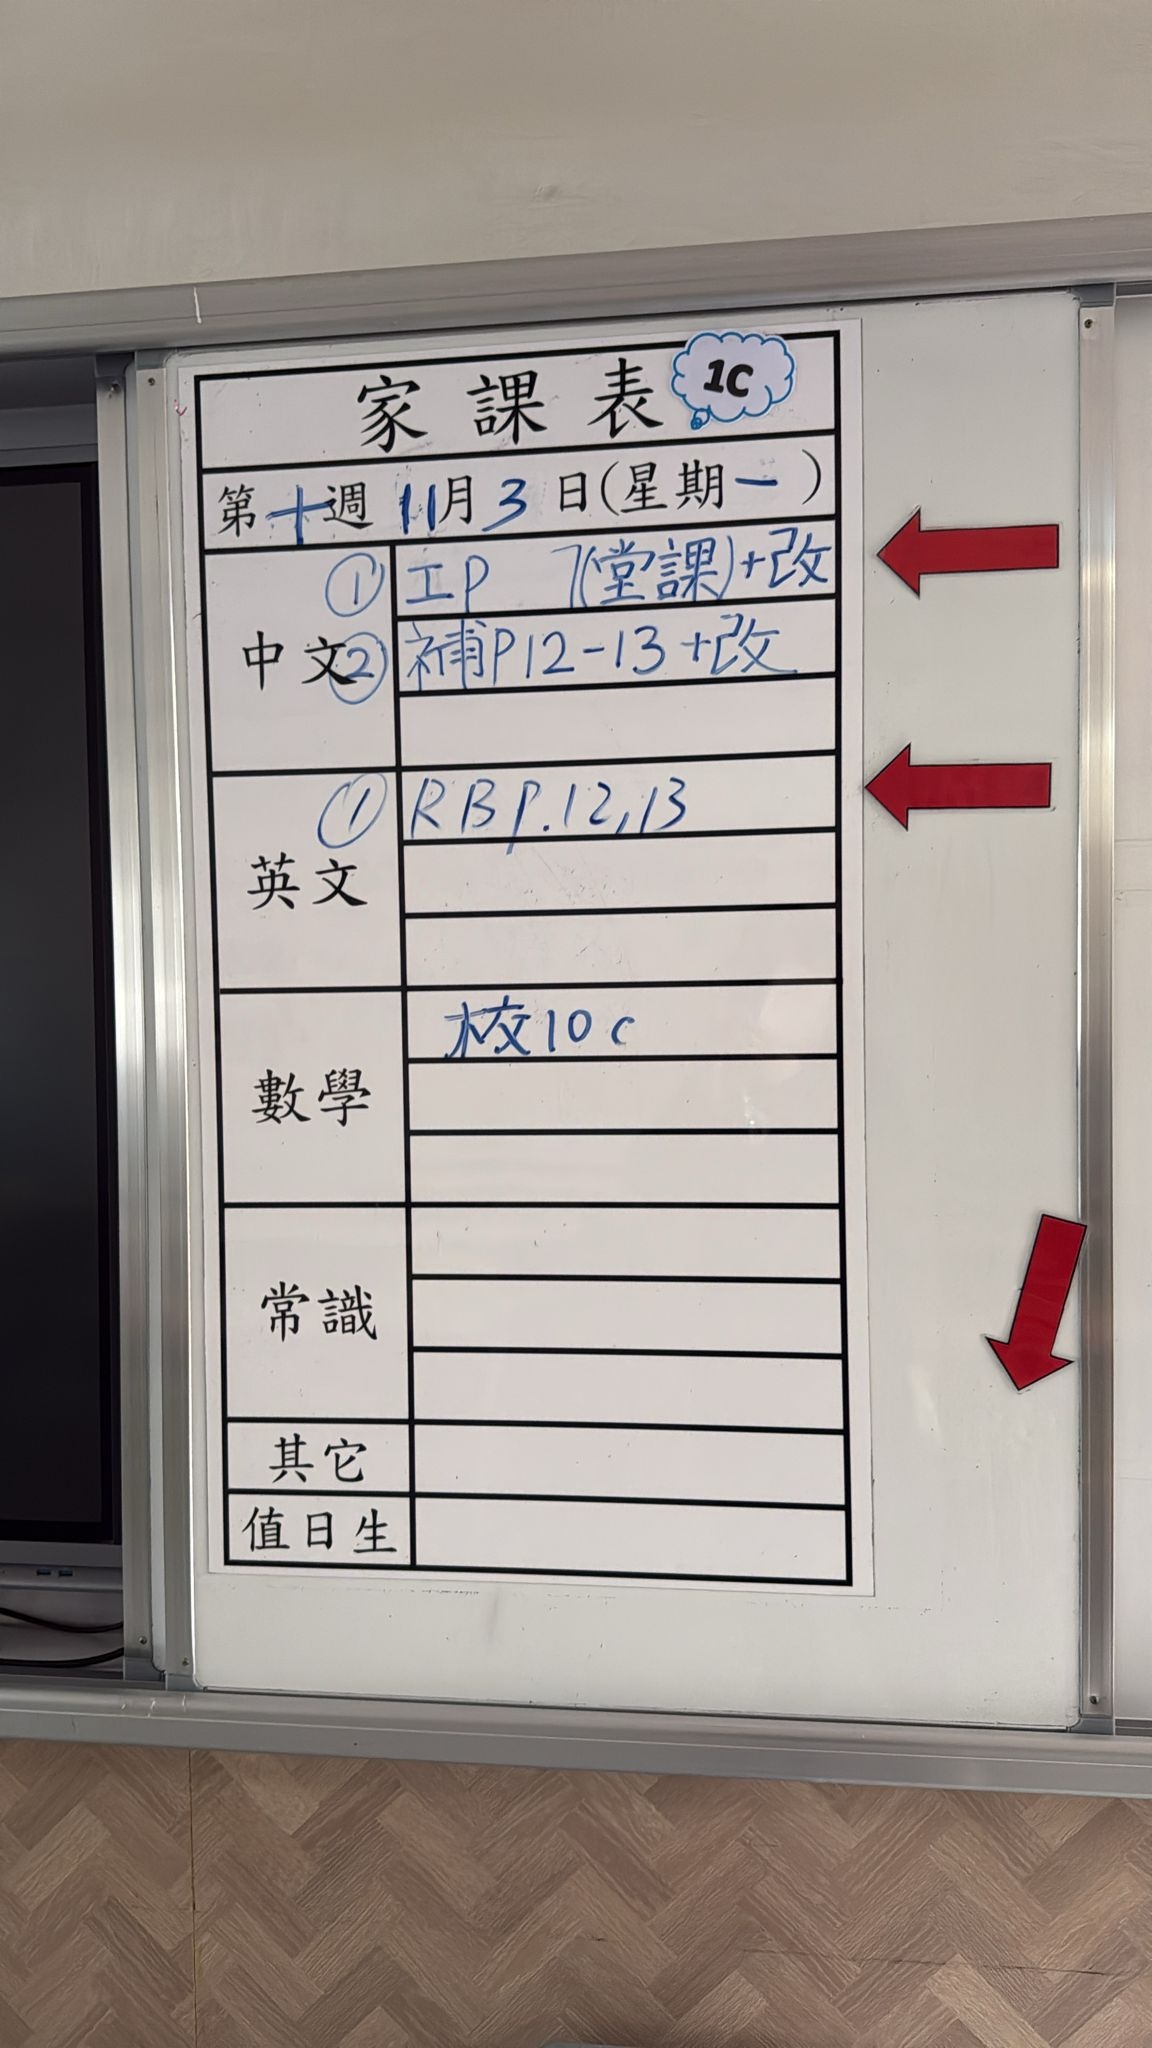 家課表 1C
第十週 11月3日(星期一)
中文 ① 工P 7(堂課)+改
② 補P12-13+改
英文 ① RB p.12,13
數學 校10c
常識
其它
值日生